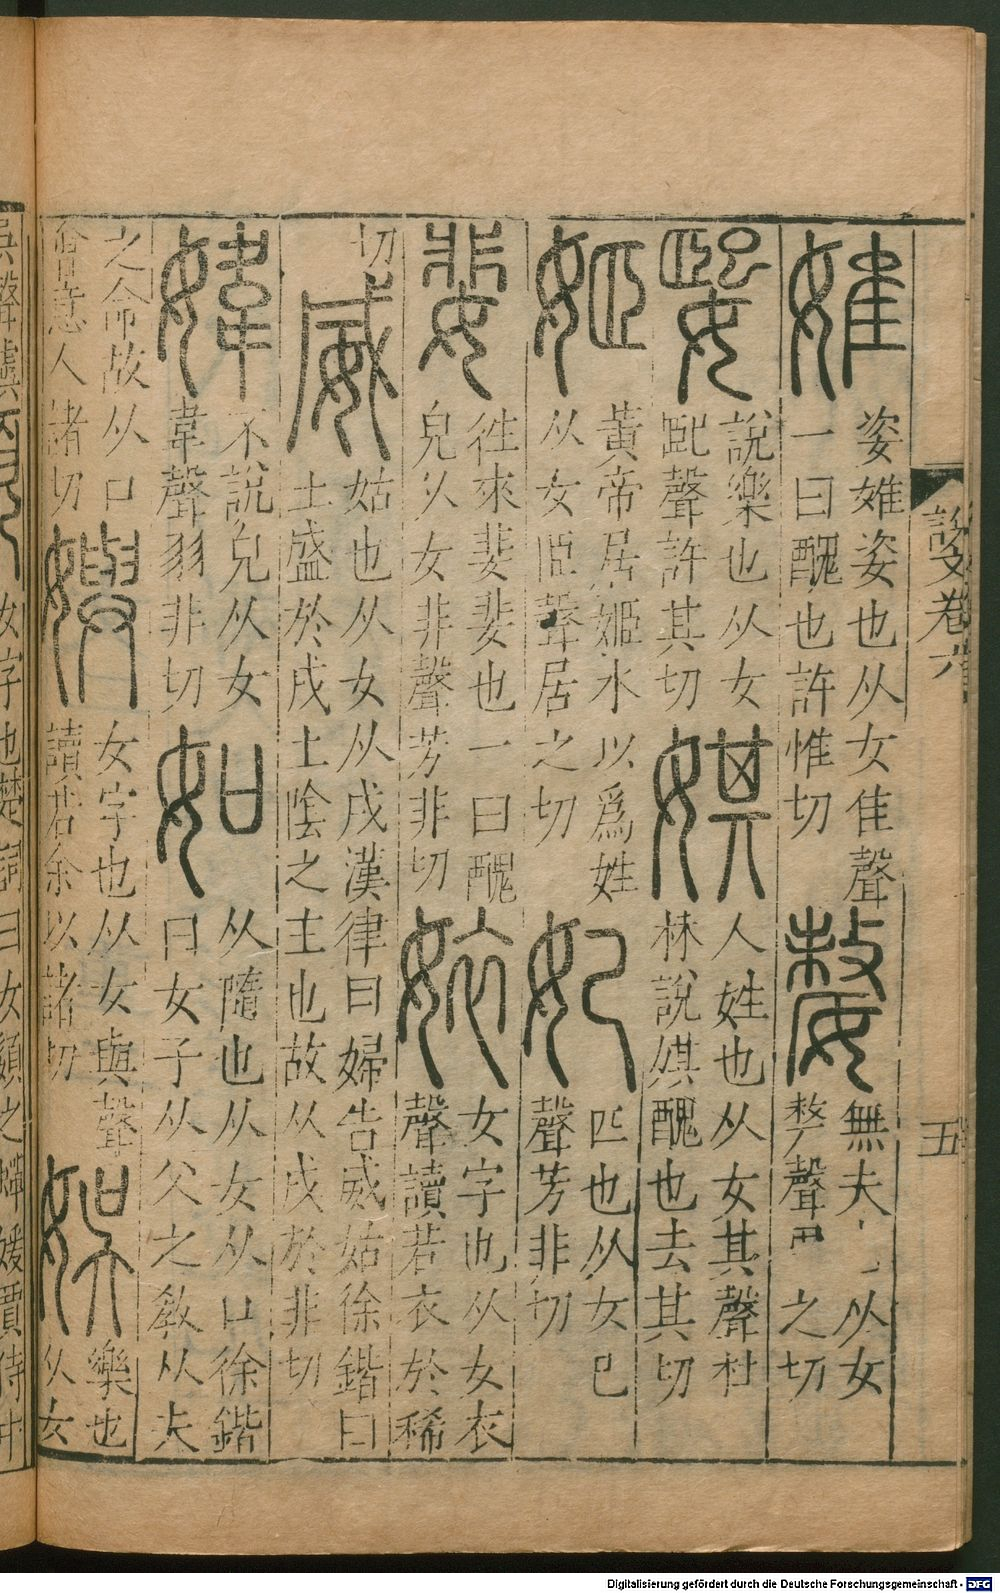 說文卷六
五
婎
姿婎姿也从女隹聲
一曰醜也許惟切
嫠
無夫也从女
𠩺聲 之切
媐
說樂也从女
巸聲許其切
娸
人姓也从女其聲杜
林說娸醜也去其切
姬
黃帝居姬水以爲姓
从女𦣞聲居之切
妃
匹也从女己
聲芳非切
婓
徃來婓婓也一曰醜
皃从女非聲芳非切
㛄
女字也从女衣
聲讀若衣於稀
切
威
姑也从女从戌漢律曰婦告威姑徐鍇曰
土盛於戌土隂之主也故从戌於非切
媁
不說皃从女
韋聲羽非切
如
从隨也从女从口徐鍇
曰女子从父之敎从夫
之命故从口
會意人諸切
㜰
女字也从女與聲
讀若余以諸切
娛
樂也
从女
吳聲虞俱切
女字也楚詞曰女嬃之嬋媛賈侍中